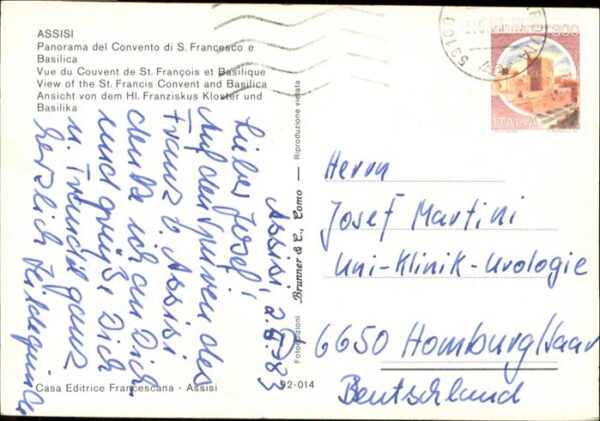 ASSISI
Panorama del Convento di S. Francesco e
Basilica
Vue du Couvent de St. François et Basilique
View of the St. Francis Convent and Basilica
Ansicht von dem Hl. Franziskus Kloster und
Basilika
Assisi 2.6.83
Lieber Josef!
Auf den Spuren des
Franz v. Assisi
denke ich an Dich
und grüße Dich
u. Traudel ganz
herzlich Hildegunde
Casa Editrice Francescana - Assisi
92-014
Fotoedizioni Brunner & C., Como — Riproduzione vietata
800
ITALIA
Herrn
Josef Martini
Uni-Klinik-Urologie
6650 Homburg/Saar
Deutschland